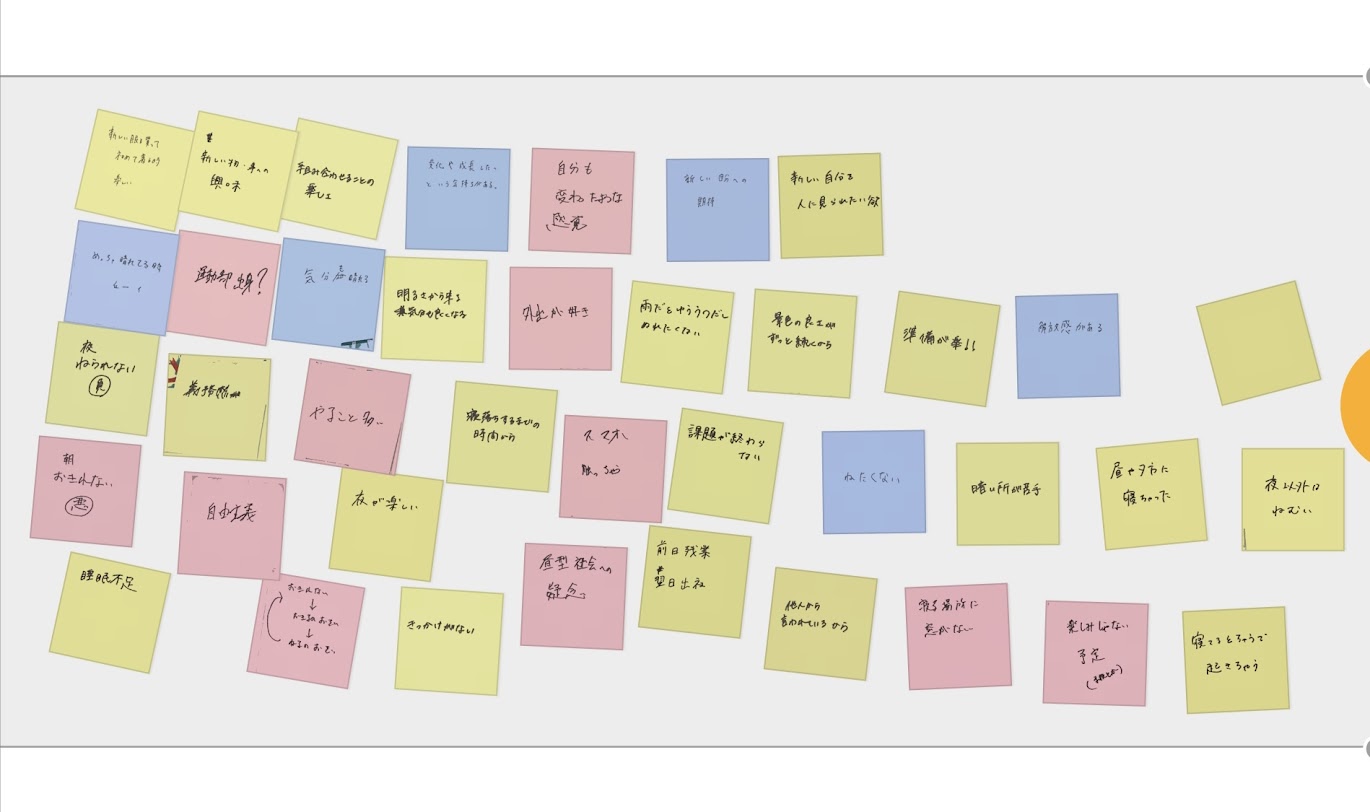 新しい服を買って
初めて着る時
楽しい
新しい物・事への
興味
組み合わせることの
楽しさ
変化や成長したい
という気持ちがある。
自分も
変わったような
感覚
新しい自分への
期待
新しい自分を
人に見られたい欲
めっちゃ晴れてる時
運動部出身?
気分晴れる
明るさから来る
気分も良くなる
外出が好き
雨だとゆううつだし
ぬれたくない
景色の良さが
ずっと続くから
準備が楽!!
解放感がある
夜
ねられない
良
義務感
やること多い
寝落ちするまでの
時間から
スマホ
触っちゃう
課題が終わら
ない
ねたくない
暗い所が苦手
昼や夕方に
寝ちゃった
夜以外は
ねむい
朝
おきれない
悪
自由主義
夜が楽しい
睡眠不足
おきれない
↓
おきるのおそい
↓
ねるのおそい
きっかけがない
昼型社会への
疑念
前日残業
翌日出社
他人から
言われているから
寝る場所に
窓がない
楽しみじゃない
予定
寝てるとちゅうで
起きちゃう